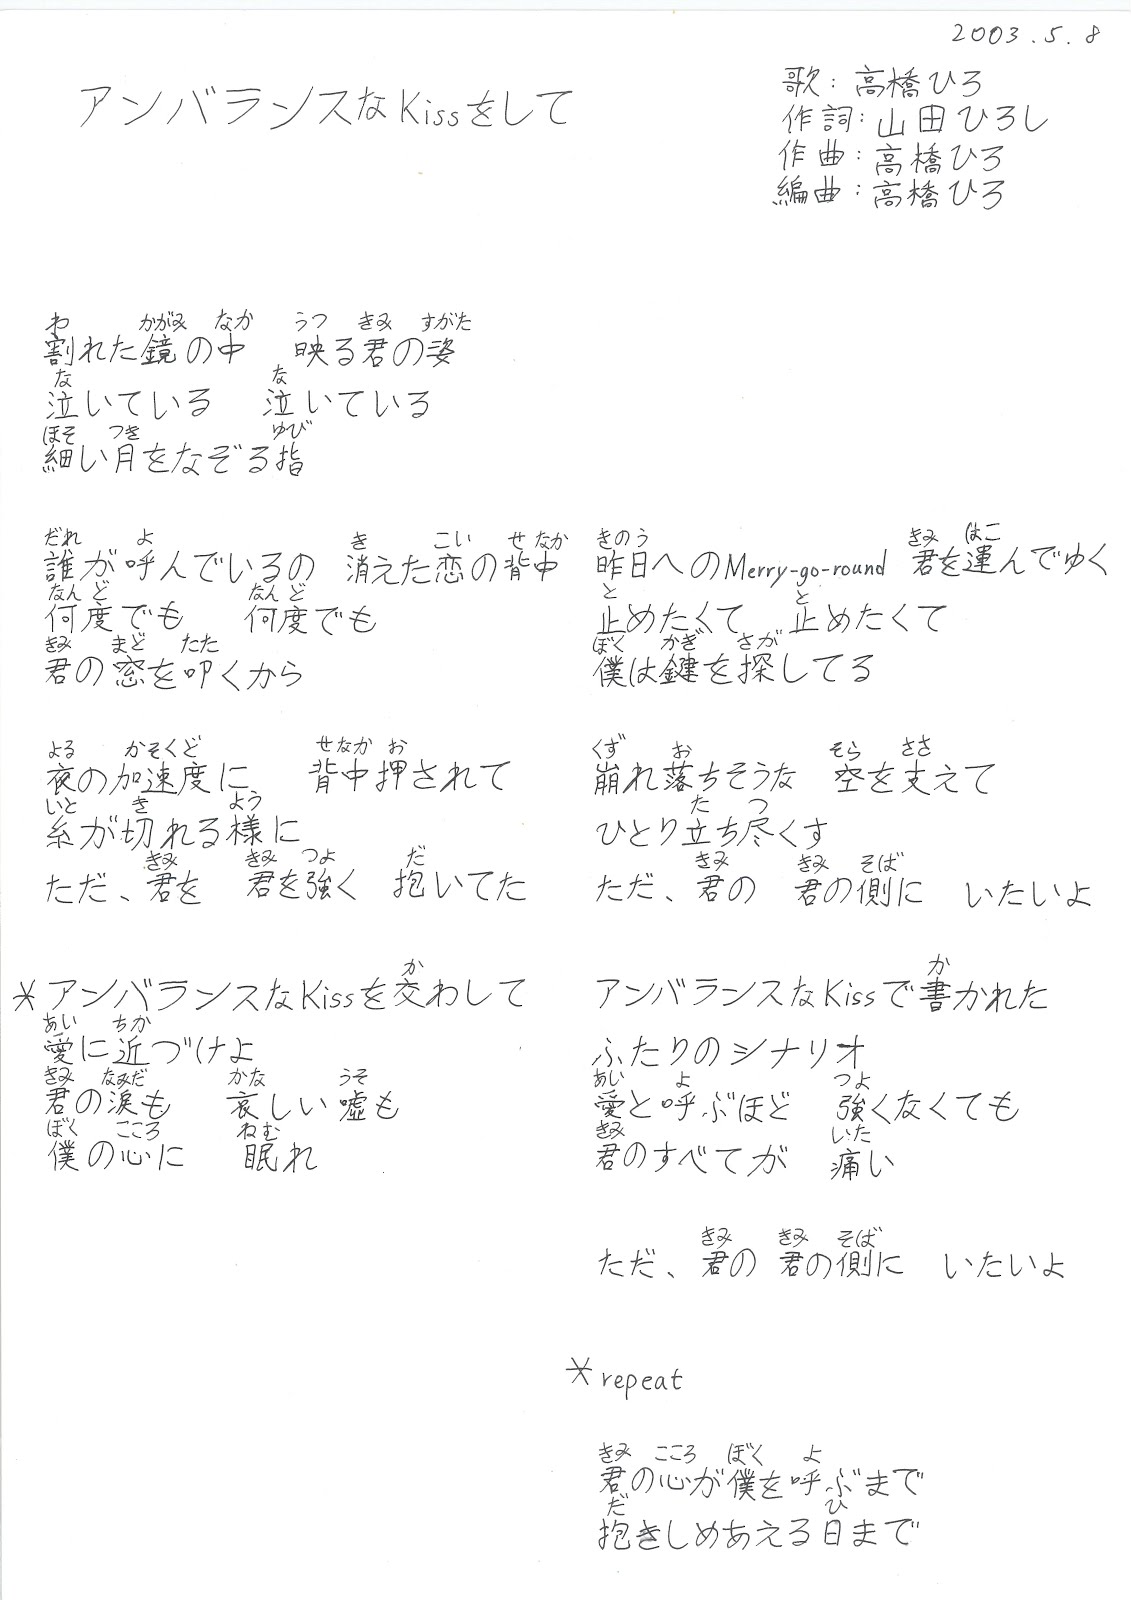 2003.5.8
アンバランスなKissをして
歌：高橋ひろ
作詞：山田ひろし
作曲：高橋ひろ
編曲：高橋ひろ
わ かがみ なか うつ きみ すがた
割れた鏡の中 映る君の姿
な な
泣いている 泣いている
ほそ つき ゆび
細い月をなぞる指
だれ よ き こい せ なか
誰が呼んでいるの 消えた恋の背中
なん ど なん ど
何度でも 何度でも
きみ まど たた
君の窓を叩くから
よる かそくど せなか お
夜の加速度に 背中押されて
いと き よう
糸が切れる様に
きみ きみ つよ だ
ただ、君を 君を強く 抱いてた
か
*アンバランスなKissを交わして
あい ちか
愛に近づけよ
きみ なみだ かな うそ
君の涙も 哀しい嘘も
ぼく こころ ねむ
僕の心に 眠れ
きのう きみ はこ
昨日へのMerry-go-round 君を運んでゆく
と と
止めたくて 止めたくて
ぼく かぎ さが
僕は鍵を探してる
くず お そら ささ
崩れ落ちそうな 空を支えて
た つ
ひとり立ち尽くす
きみ きみ そば
ただ、君の 君の側に いたいよ
か
アンバランスなKissで書かれた
ふたりのシナリオ
あい よ つよ
愛と呼ぶほど 強くなくても
きみ いた
君のすべてが 痛い
きみ きみ そば
ただ、君の 君の側に いたいよ
*repeat
きみ こころ ぼく よ
君の心が僕を呼ぶまで
だ ひ
抱きしめあえる日まで